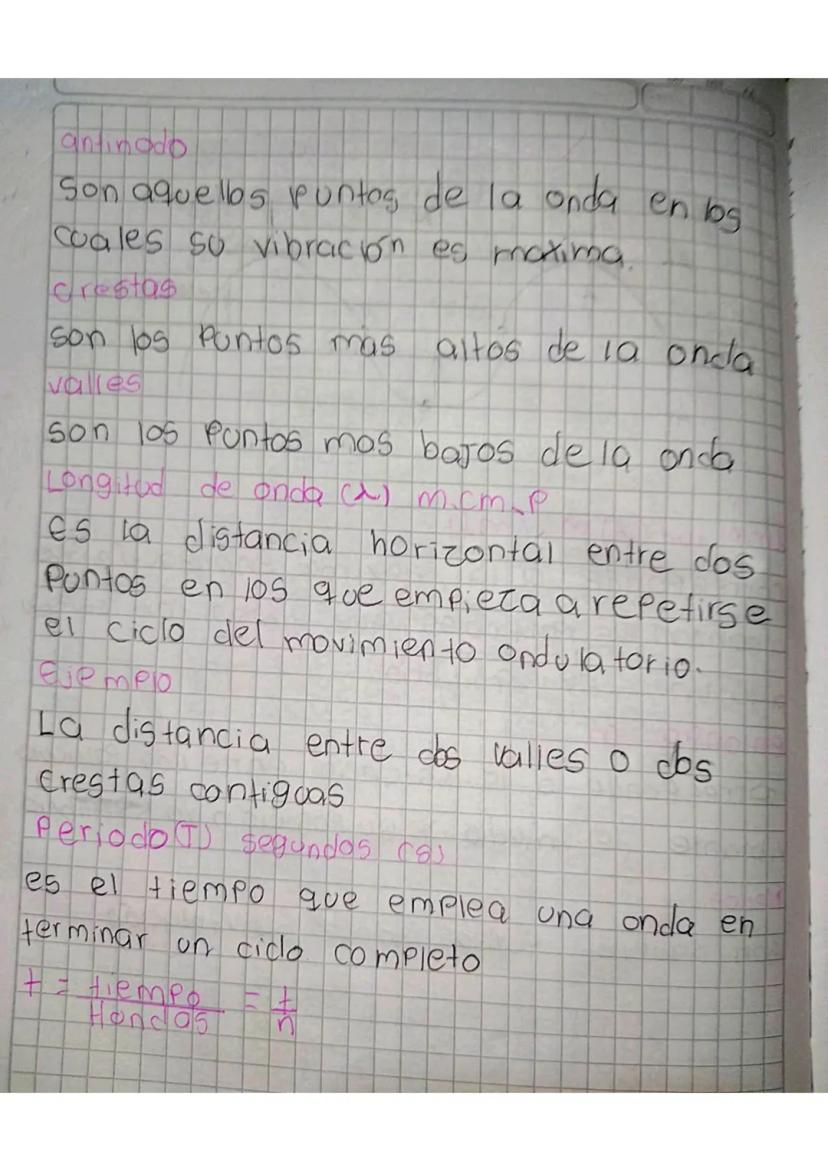 antinodo
son aquellos puntos de la onda en los
cuales su vibración es maxima.
crestas
son los puntos mas altos de la onda
valles
son los puntos mas bajos de la onda
Longitud de onda (λ) m.cm.P
es la distancia horizontal entre dos
puntos en los que empieza a repetirse
el ciclo del movimiento ondulatorio.
Ejemplo
La distancia entre dos valles o dos
crestas contiguas
Periodo (T) segundos (s)
es el tiempo que emplea una onda en
terminar un ciclo completo
t = tiempo / #ondas = t / n